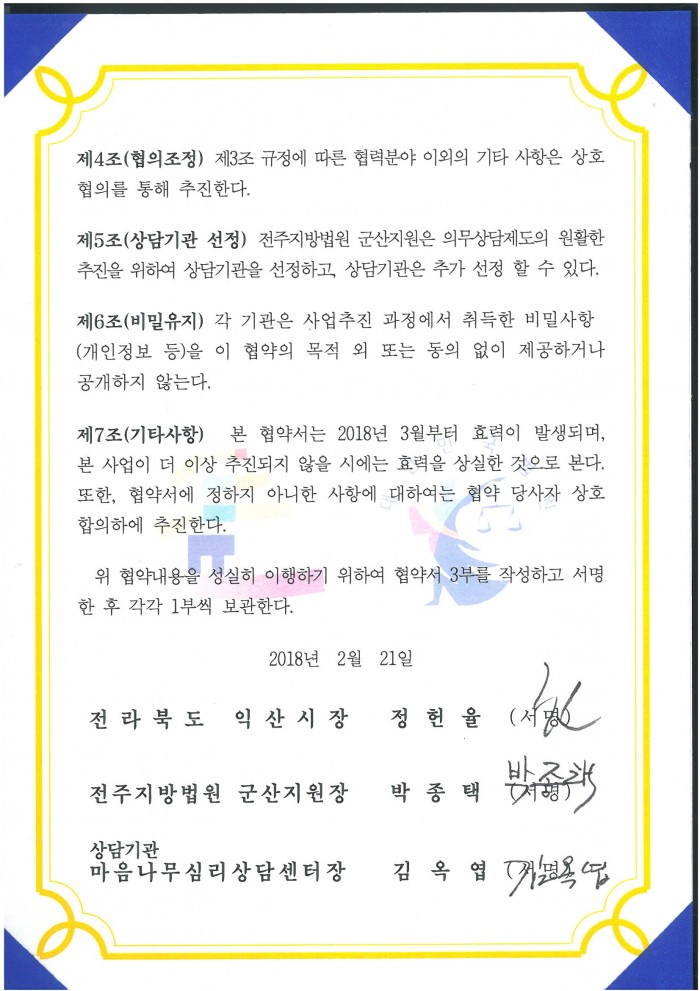 제4조(협의조정) 제3조 규정에 따른 협력분야 이외의 기타 사항은 상호
협의를 통해 추진한다.
제5조(상담기관 선정) 전주지방법원 군산지원은 의무상담제도의 원활한
추진을 위하여 상담기관을 선정하고, 상담기관은 추가 선정 할 수 있다.
제6조(비밀유지) 각 기관은 사업추진 과정에서 취득한 비밀사항
(개인정보 등)을 이 협약의 목적 외 또는 동의 없이 제공하거나
공개하지 않는다.
제7조(기타사항) 본 협약서는 2018년 3월부터 효력이 발생되며,
본 사업이 더 이상 추진되지 않을 시에는 효력을 상실한 것으로 본다.
또한, 협약서에 정하지 아니한 사항에 대하여는 협약 당사자 상호
합의하에 추진한다.
위 협약내용을 성실히 이행하기 위하여 협약서 3부를 작성하고 서명
한 후 각각 1부씩 보관한다.
2018년 2월 21일
전라북도 익산시장 정헌율 (서명)
전주지방법원 군산지원장 박종택 (서명) 박종택
상담기관
마음나무심리상담센터장 김옥엽 (서명) 김옥엽